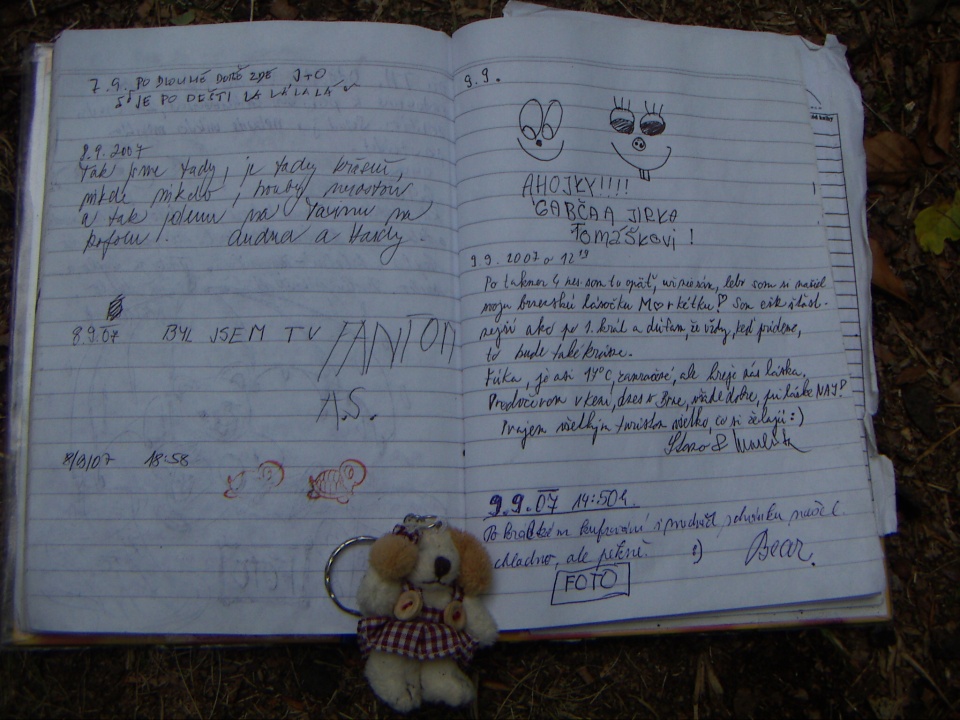 7.9. PO DLOUHÉ DOBĚ ZDE J+O
JE PO DEŠTI LA LÁ LA LÁ
8.9.2007
tak jsme tady, je tady krásně,
nikde nikdo, houby nerostou
a tak jdeme na na
kofolu. a Hardy.
8.9.07 BYL JSEM TU FANTOM
A.S.
8/9/07 18:58
9.9.
AHOJKY!!!!
GABČA A JIRKA
TOMÁŠKOVI!
9.9.2007 o 12 19
Po takmer 4 som tu opäť, som si našiel
moju lásočku M♥rkétku! Som
ako po 1. krát a dúfam, že vždy, keď prídeme,
to bude také krásne.
Fúka, je asi 14°C, zamračené, ale hreje nás láska.
dnes v Brne, všade dobre, pri láske NAJ!
Prajem všetkým turistom všetko, čo si želajú :)
9.9.07 14:50h.
Po krátkém
chladno, ale pěkně. :) Bear.
FOTO